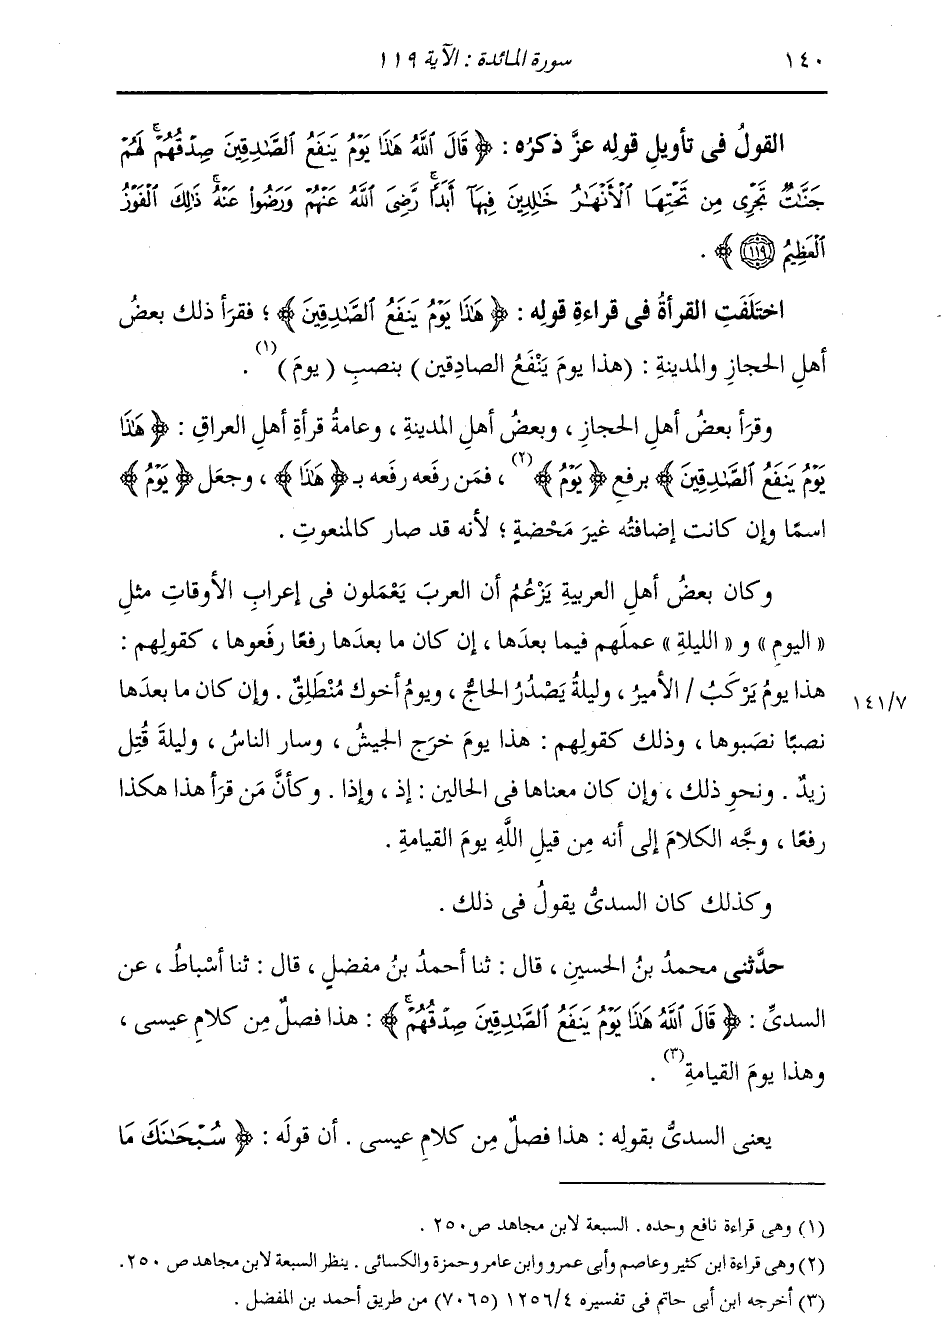 ١٤٠ سورة المائدة : الآية ١١٩
القولُ فى تأويلِ قولِه عزَّ ذكرُه : ﴿ قَالَ ٱللَّهُ هَٰذَا يَوۡمُ يَنفَعُ ٱلصَّٰدِقِينَ صِدۡقُهُمۡۚ لَهُمۡ
جَنَّٰتٞ تَجۡرِى مِن تَحۡتِهَا ٱلۡأَنۡهَٰرُ خَٰلِدِينَ فِيهَآ أَبَدٗاۚ رَّضِىَ ٱللَّهُ عَنۡهُمۡ وَرَضُوا۟ عَنۡهُۚ ذَٰلِكَ ٱلۡفَوۡزُ
ٱلۡعَظِيمُ ١١٩ ﴾ .
اختَلَفَتِ القرأةُ فى قراءةِ قولِه : ﴿ هَٰذَا يَوۡمُ يَنفَعُ ٱلصَّٰدِقِينَ ﴾ ؛ فقرَأ ذلك بعضُ
أهلِ الحجازِ والمدينةِ : (هذا يومَ يَنْفَعُ الصادِقين) بنصبِ (يومَ)(١) .
وقرَأ بعضُ أهلِ الحجازِ ، وبعضُ أهلِ المدينةِ ، وعامةُ قرأةِ أهلِ العراقِ : ﴿ هَٰذَا
يَوۡمُ يَنفَعُ ٱلصَّٰدِقِينَ ﴾ برفعِ ﴿ يَوۡمُ ﴾(٢) ، فمَن رفَعه رفَعه بـ ﴿ هَٰذَا ﴾ ، وجعَل ﴿ يَوۡمُ ﴾
اسمًا وإن كانت إضافتُه غيرَ مَحْضةٍ ؛ لأنه قد صار كالمنعوتِ .
وكان بعضُ أهلِ العربيةِ يَزْعُمُ أن العربَ يَعْمَلون فى إعرابِ الأوقاتِ مثلِ
« اليومِ » و « الليلةِ » عملَهم فيما بعدَها ، إن كان ما بعدَها رفعًا رفَعوها ، كقولِهم :
هذا يومُ يَرْكَبُ / الأميرُ ، وليلةُ يَصْدُرُ الحاجُّ ، ويومُ أخوك مُنْطَلِقٌ . وإن كان ما بعدَها ١٤١/٧
نصبًا نصَبوها ، وذلك كقولِهم : هذا يومَ خرَج الجيشُ ، وسار الناسُ ، وليلةَ قُتِل
زيدٌ . ونحوِ ذلك ، وإن كان معناها فى الحالين : إذ ، وإذا . وكأنَّ مَن قرَأ هذا هكذا
رفعًا ، وجَّه الكلامَ إلى أنه مِن قيلِ اللَّهِ يومَ القيامةِ .
وكذلك كان السدىُّ يقولُ فى ذلك .
حدَّثنى محمدُ بنُ الحسينِ ، قال : ثنا أحمدُ بنُ مفضلٍ ، قال : ثنا أسْباطُ ، عن
السدىِّ : ﴿ قَالَ ٱللَّهُ هَٰذَا يَوۡمُ يَنفَعُ ٱلصَّٰدِقِينَ صِدۡقُهُمۡۚ ﴾ : هذا فصلٌ مِن كلامِ عيسى ،
وهذا يومَ القيامةِ(٣) .
يعنى السدىُّ بقولِه : هذا فصلٌ مِن كلامِ عيسى . أن قولَه : ﴿ سُبۡحَٰنَكَ مَا
(١) وهى قراءة نافع وحده . السبعة لابن مجاهد ص ٢٥٠ .
(٢) وهى قراءة ابن كثير وعاصم وأبى عمرو وابن عامر وحمزة والكسائى . ينظر السبعة لابن مجاهد ص ٢٥٠.
(٣) أخرجه ابن أبى حاتم فى تفسيره ١٢٥٦/٤ (٧٠٦٥) من طريق أحمد بن المفضل .